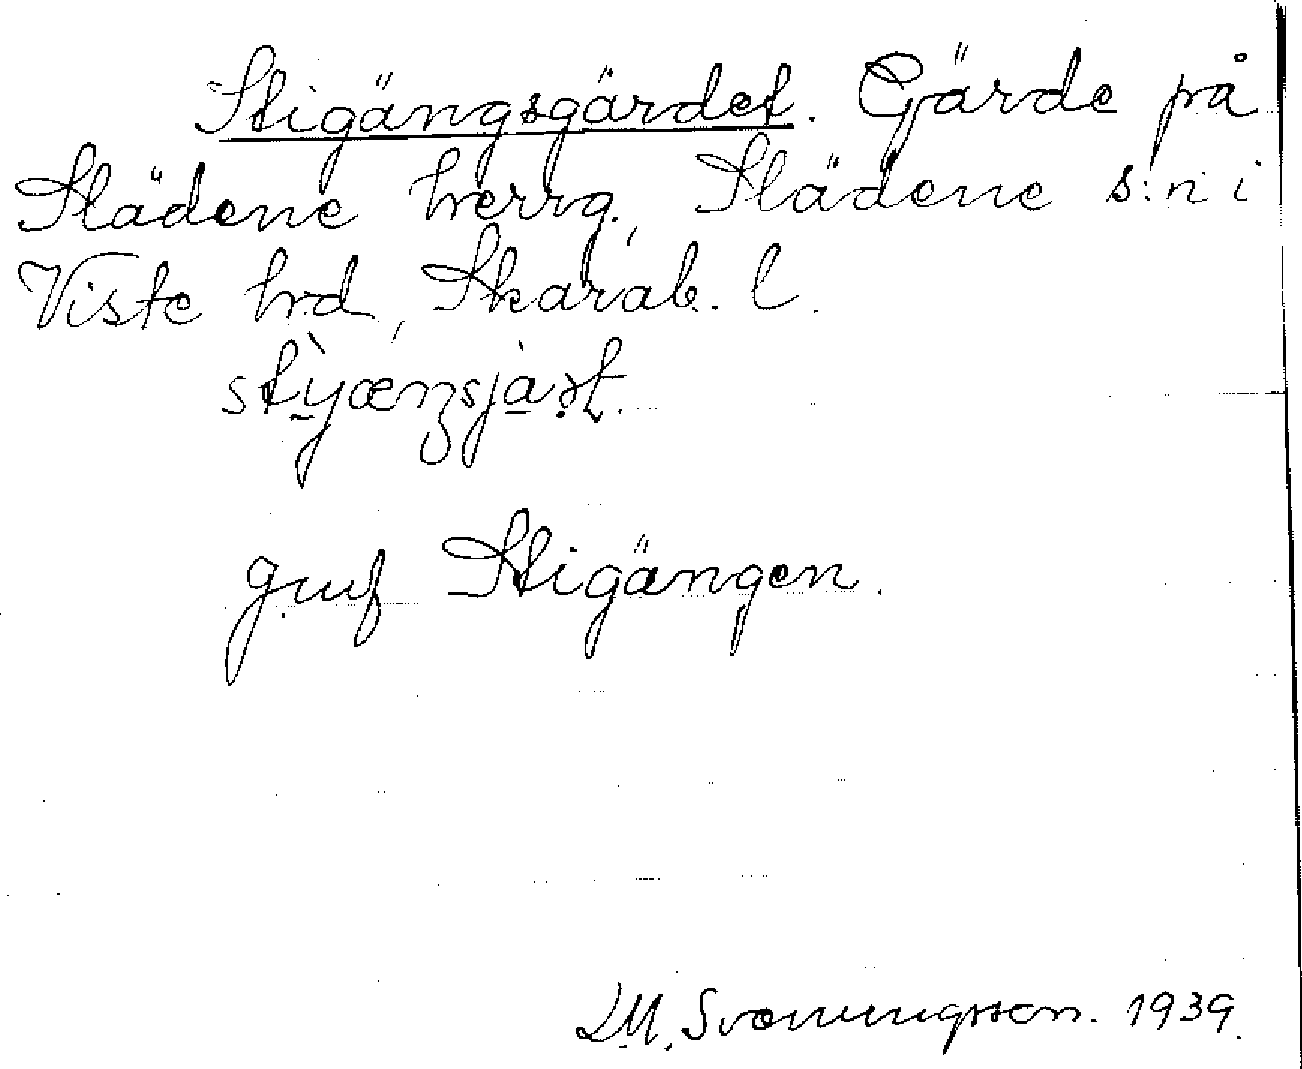 Stigängsgärdet. Gärde på
Slädene herrg., Slädene s:n i
Viste hd, Skarab. l.
gmf Stigängen.
D.M. Svenningsson. 1939.